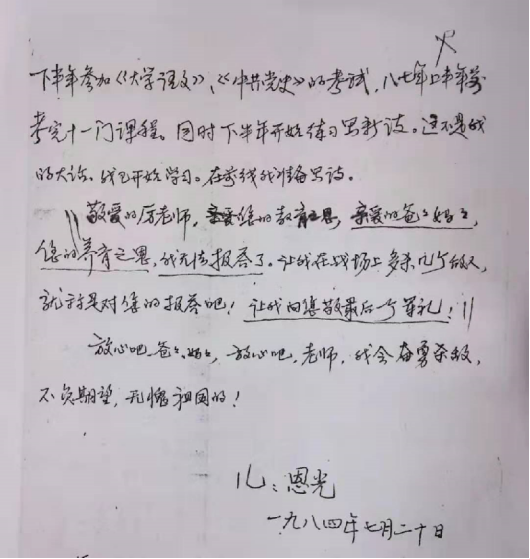 下半年参加《大学语文》、《中共党史》的考试，八七年上半年要
考完十一门课程。同时下半年开始练习写新诗。这不是我
的大话，我已开始学习。在前线我准备写诗。
敬爱的厉老师，您的教育之恩，亲爱的爸爸妈妈，
您的养育之恩，我无法报答了。让我在战场上多杀几个敌人，
就算是对您的报答吧！让我向您敬最后一个军礼！
放心吧，爸爸妈妈，放心吧，老师，我会奋勇杀敌，
不负期望，无愧祖国的！
儿：恩光
一九八四年七月二十日